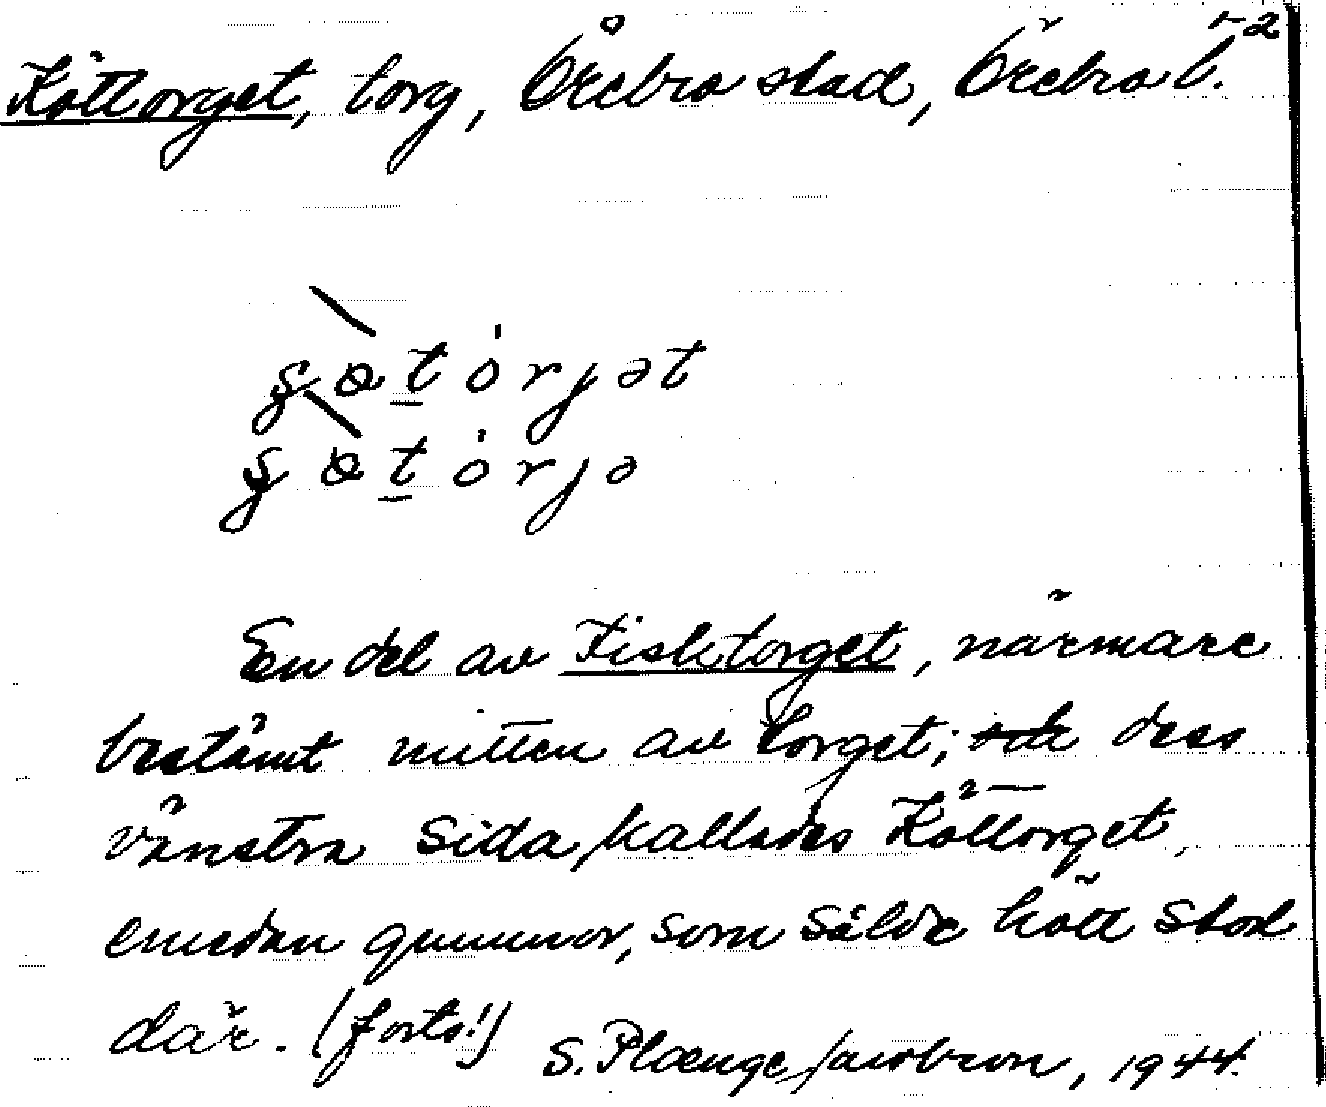 Köttorget, torg, Örebro stad, Örebro l. 1-2
En del av Fisktorget, närmare
bestämt mitten av torget; och dess
vänstra sida, kallades Köttorget,
emedan gummor, som sålde kött stod
där. (forts!)
S. Plænge Jacobson, 1944.